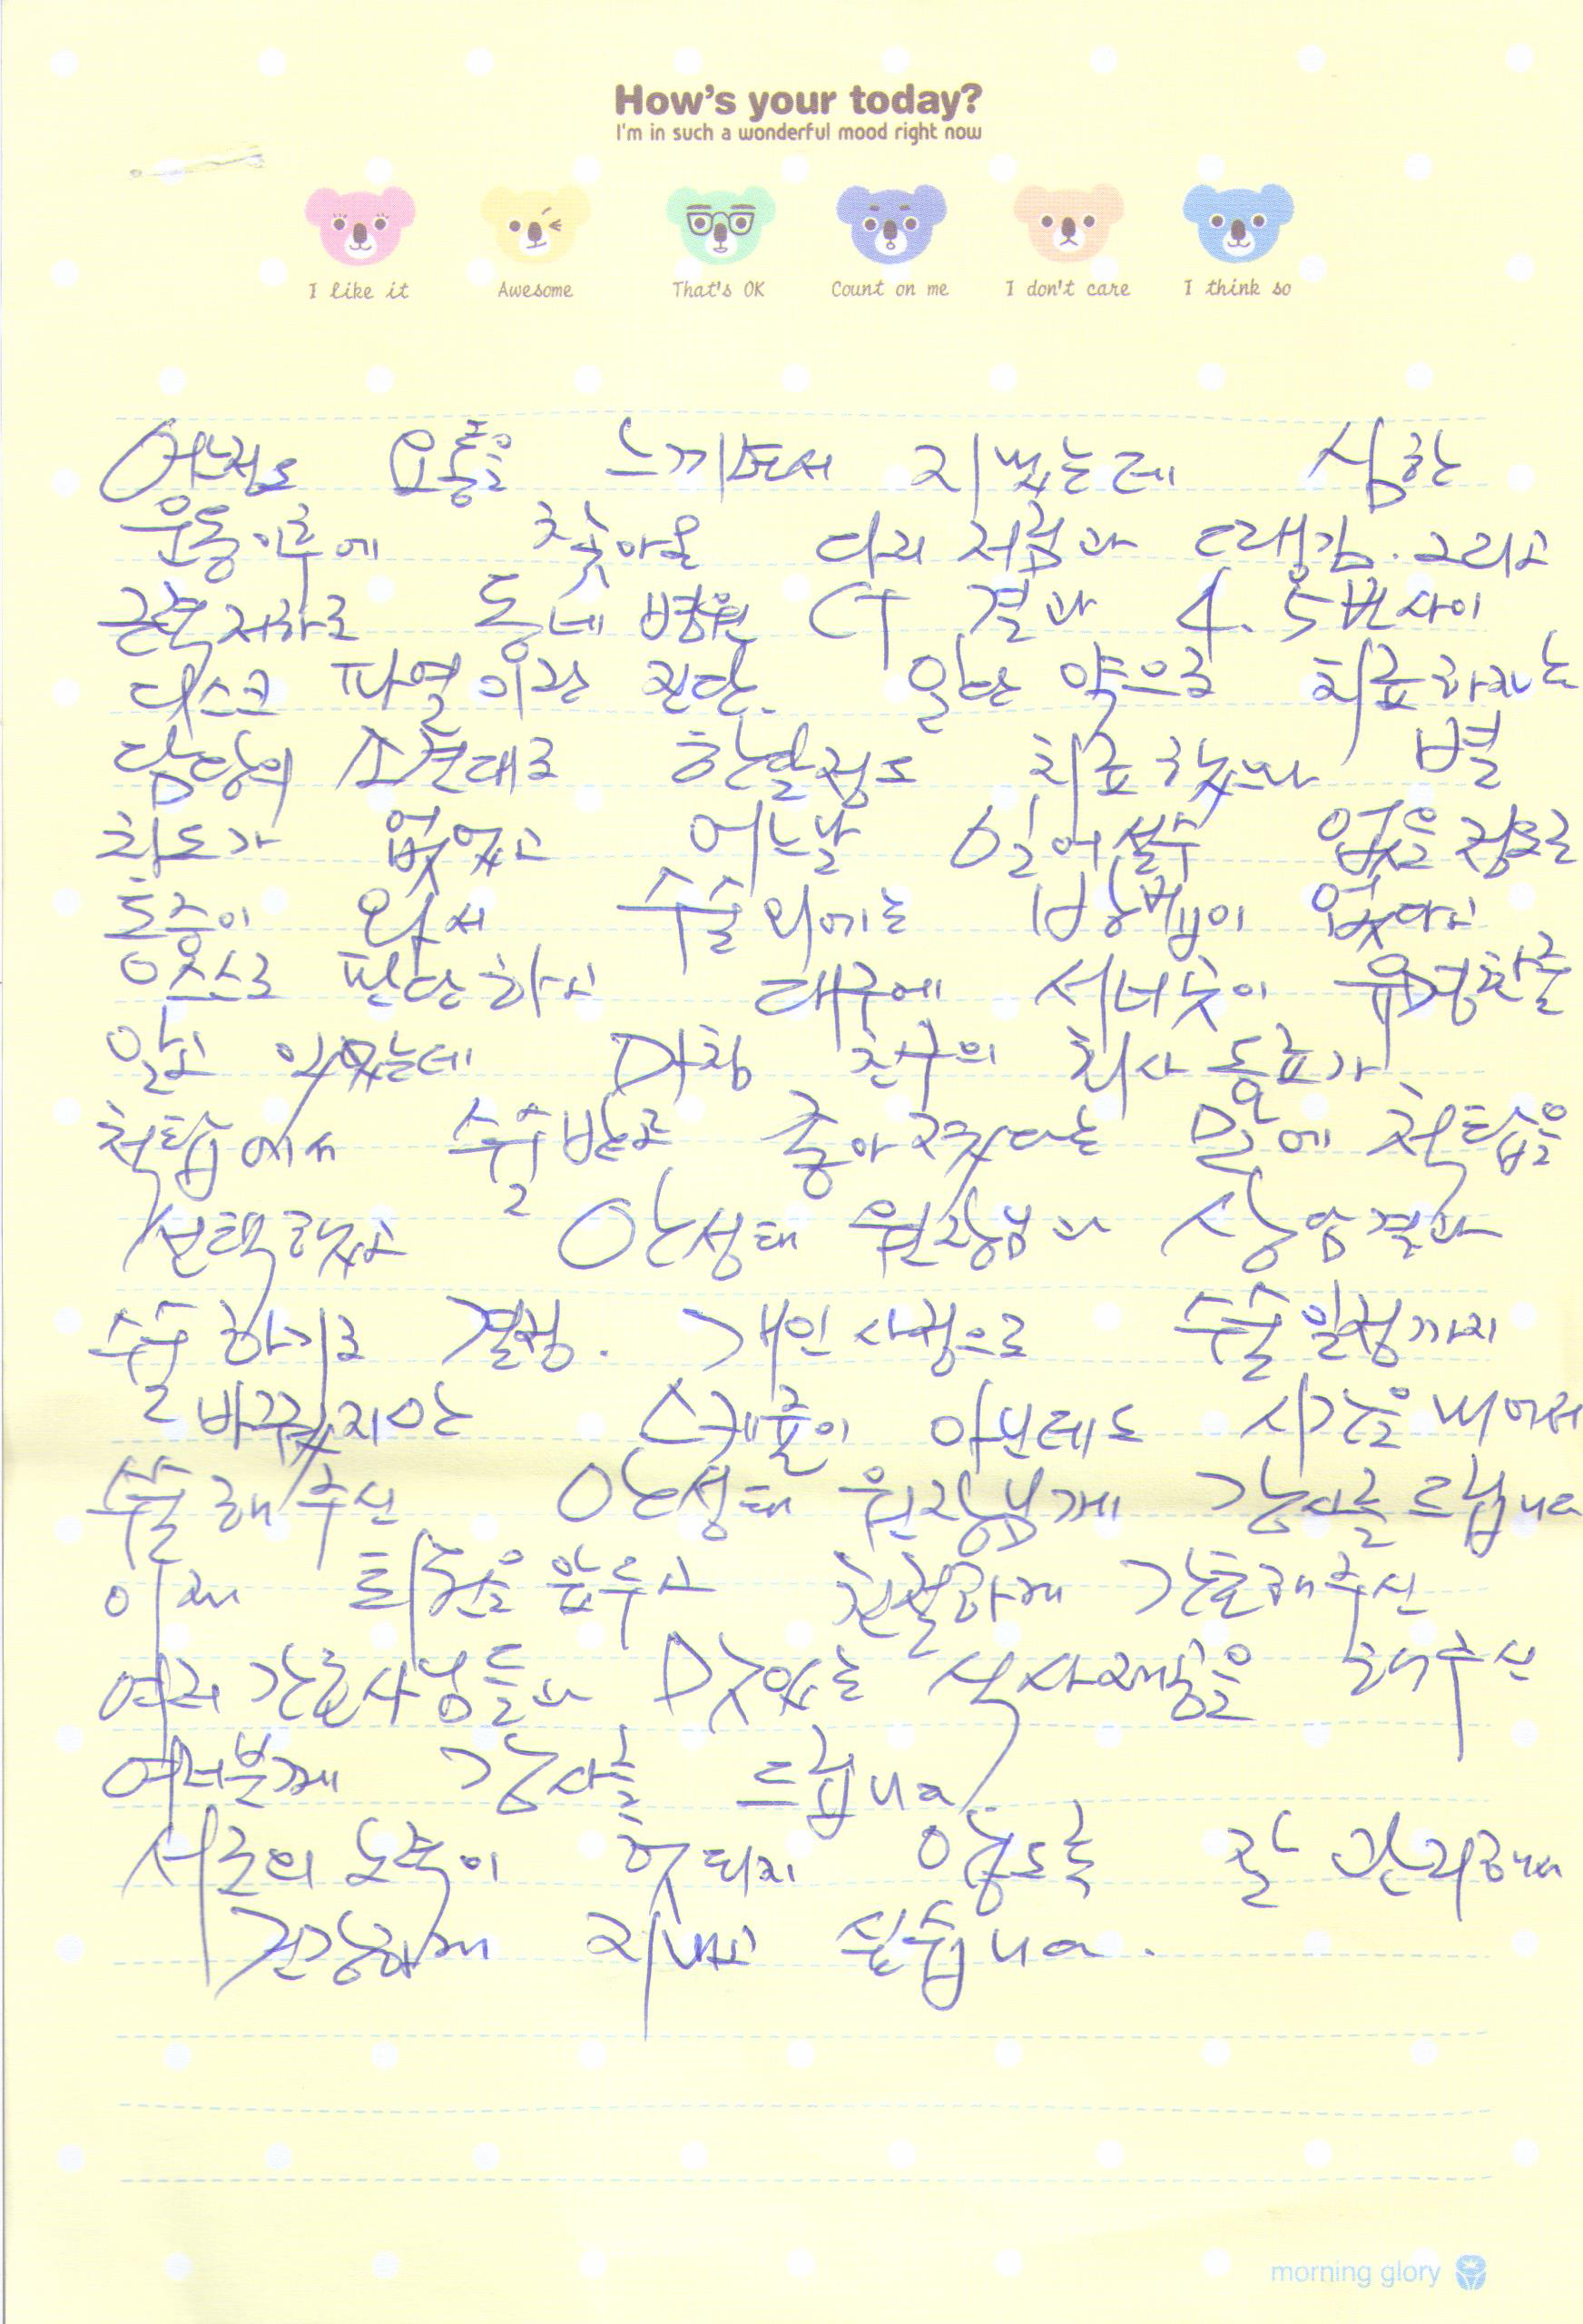 How's your today?
I'm in such a wonderful mood right now
I like it Awesome That's OK Count on me I don't care I think so
어느정도 요통을 느끼면서 지냈는데 심한
운동이후에 찾아온 다리 저림과 땡김. 그리고
근력저하로 동네 병원 CT 결과 4. 5번사이
디스크 파열이란 진단. 일단 약으로 치료하자는
담당의 소견대로 한달정도 치료했으나 별
차도가 없었고 어느날 일어설수 없을 정도로
통증이 와서 수술외에는 방법이 없다고
스스로 판단하고 대구에 서너곳이 유명한줄
알고 있었는데 마침 친구의 회사 동료가
척탑에서 수술받고 좋아졌다는 말에 척탑을
선택했고 안성태 원장님과 상담결과
수술하기로 결정. 개인사정으로 수술일정까지
바꿔지않는 스케줄이 아닌데도 시간을 내어서
수술해주신 안성태 원장님께 감사를 드립니다
이제 퇴원을 앞두고 친절하게 간호해주신
여러 간호사님들과 맛있는 식사제공을 해주신
여러분께 감사를 드립니다
서로의 노력이 헛되지 않도록 잘 관리해서
건강하게 지내고 싶습니다.
morning glory